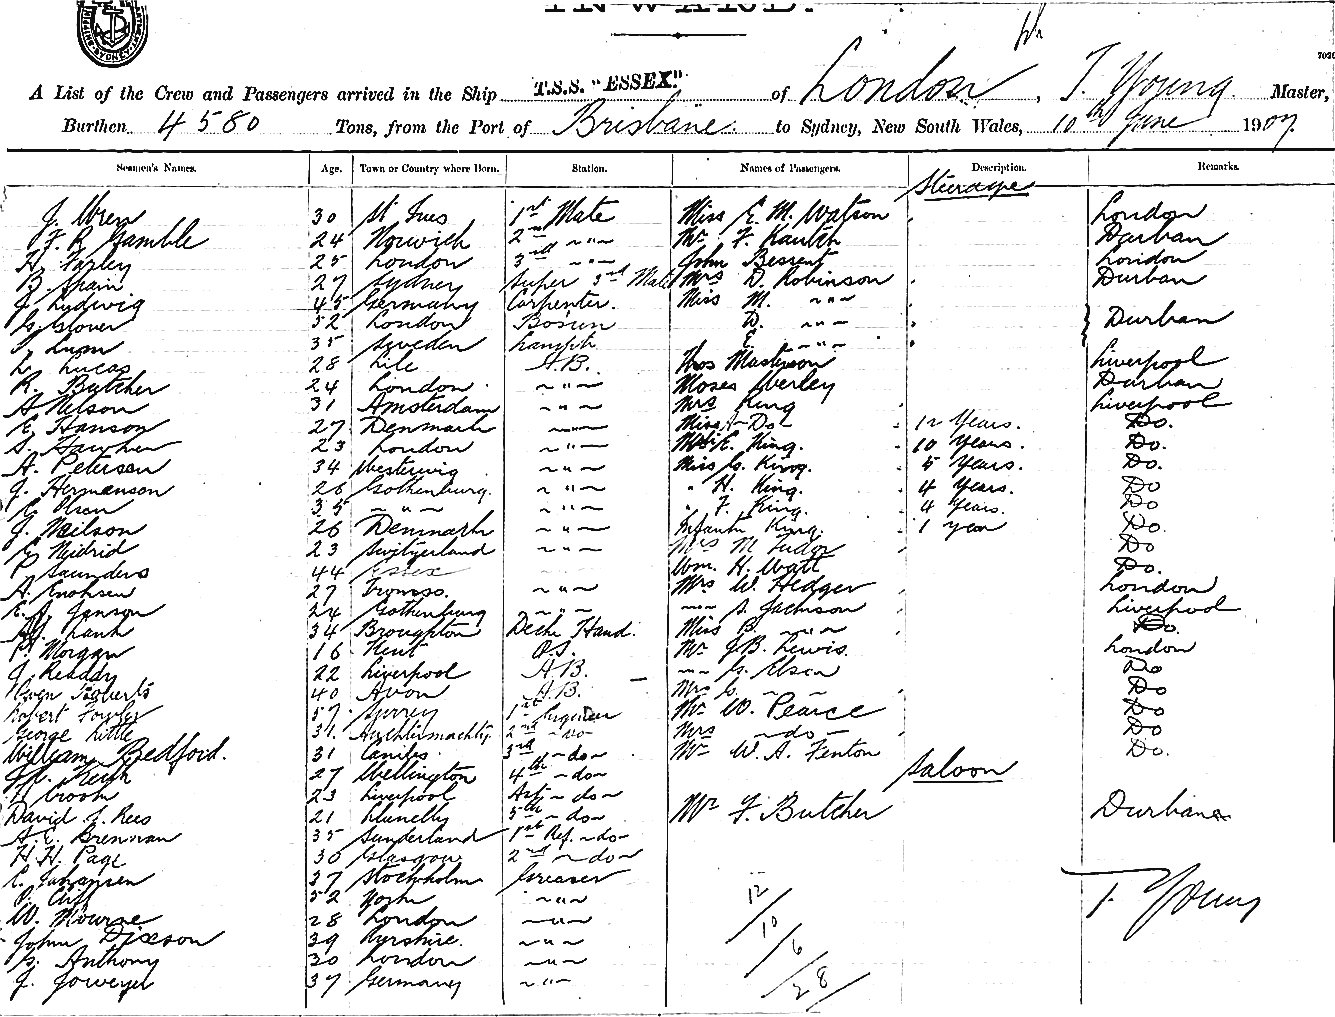 INWARD.
A List of the Crew and Passengers arrived in the Ship T.S.S. "ESSEX" of London, T. Young Master,
Burthen 4580 Tons, from the Port of Brisbane to Sydney, New South Wales, 10th June 1907.
Seamen's Names. Age. Town or Country where Born. Station. Names of Passengers. Description. Remarks.
Steerage
J. Wren 30 St Ives 1st Mate Miss E. M. Watson London
F. R. Gamble 24 Norwich 2nd Mr F. Durban
H. Farley 25 London 3rd John Bessent London
Spain 27 Sydney Super 3rd Mate Mrs D. Robinson Durban
J. Ludwig 45 Germany Carpenter. Miss M.
G. Glover 52 London Bosun D. Durban
Lum 35 Sweden Lamptr E.
L. Lucas 28 A.B. Thos Liverpool
R. Butcher 24 London Moses Durban
A. Nelson 31 Amsterdam Mrs King Liverpool
E. Hanson 27 Denmark Miss Do 12 Years. Do.
S. 23 London E. King. 10 Years. Do.
A. Peterson 34 Miss G. King. 5 Years. Do.
J. Hermanson 26 Gothenburg. " H. King. 4 Years. Do
Olsen 35 " F. King. 4 Years. Do
J. Neilson 26 Denmark Infant King. 1 year Do.
23 Switzerland Mrs M. Tudor Do
P. Saunders 44 Essex Wm. H. Watt Do.
A. 27 Tromso. Mrs W. Hedger London
E. A. Janson 24 Gothenburg S. Jackson Liverpool
34 Broughton Deck Hand. Miss B. Do.
P. Morgan 16 Kent O.S. Mr J. B. Lewis London
J. Reddy 22 Liverpool A.B. G. Elsen Do
Owen Roberts 40 Avon A.B. Mrs G. Do
Robert Fowler 57 Surrey 1st Engineer Mr W. Pearce Do
George Little 31. 2nd do Mrs do Do
William Bedford. 31 3rd do Mr W. A. Fenton Do.
27 Wellington 4th do Saloon
Croom 23 Liverpool Ast do
David J. Rees 21 Llanelly 5th do Mr F. Butcher Durban
A. E. Brennan 35 Sunderland 1st Ref. do
H. H. Page 30 Glasgow 2nd do
E. Johansen 37 Stockholm Greaser
Cliff 52 York " 12
W. Mourne 28 London " T. Young
John Dixson 39 Ayrshire. " 10
G. Anthony 30 London " 6
J. 37 Germany " 28